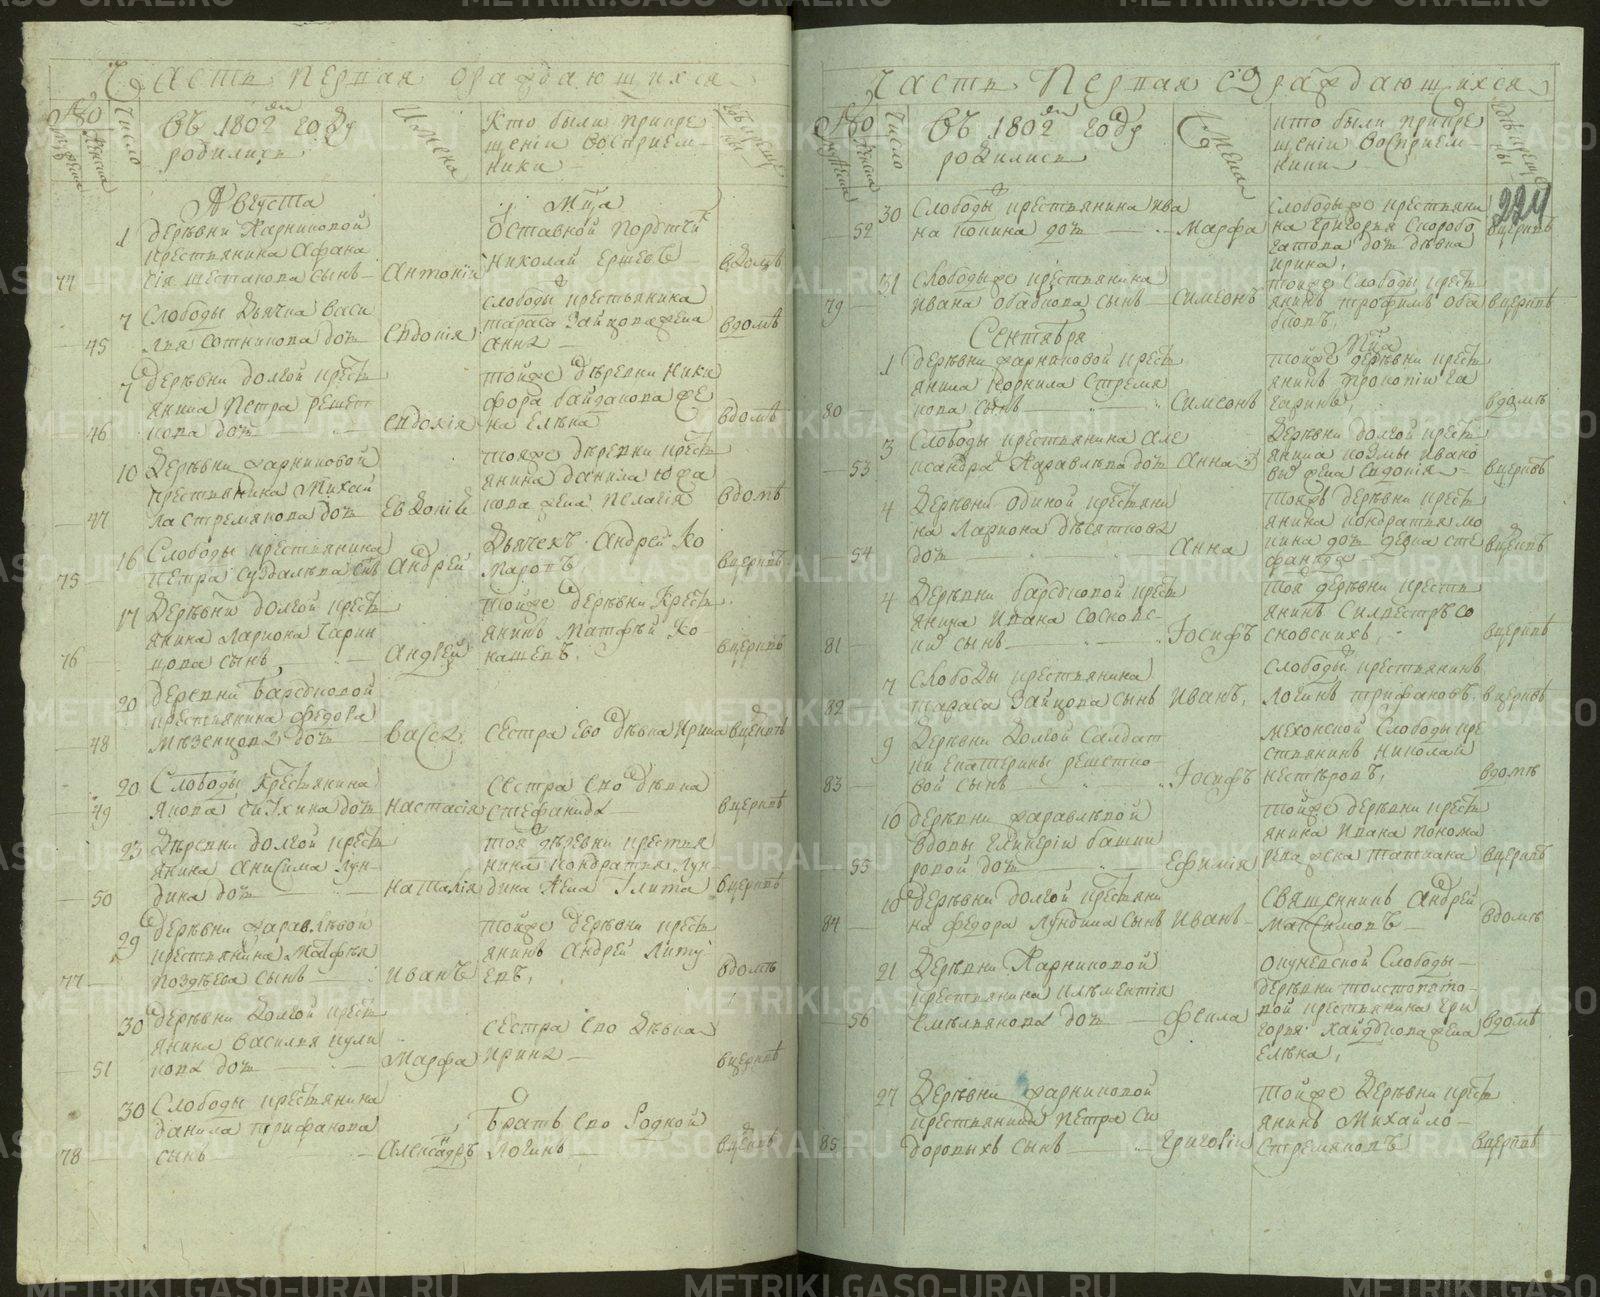 Часть Первая ораждающихся
Число
Въ 1802 году
родились
Имена
Кто были при кре
щении восприем
ники
Августа
Мца
1 деревни Жарниковой
крестьянина Афана
сія Шестакова сынъ
Антоній
Отставной
Николай Ершевъ
вдомѣ
7 Слободы Дьячка Васи
лья Сотникова дочь
45
Евдокія
слободы крестьянина
Тараса Зайкова жена
Анна
вдомѣ
7 деревни Долгой крестъ
янина Петра Решет
кова дочь
46
евдокія
тойже деревни Ники
фора Байдакова же
на Елена
вдомѣ
10 Деревни Жарниковой
крестьянина Михай
ла Стремякова дочь
47
Евдокія
тояже деревни крестъ
янина Данила Юфа
кова жена Пелагія
вдомѣ
16 Слободы крестьянина
Петра Суздалева снъ
75
Андрей
Дьячекъ Андрей Ко
маровъ
вцерквѣ
17 Деревни Долгой крестъ
янина Лариона Чарин
цова сынъ
76
Андрей
тойже деревни крестъ
янинъ Матфей Ко
кашевъ
вцерквѣ
20 деревни Барсуковой
крестьянина Федора
Мезенцова дочь
48
Васса
Сестра Ево Девка Ирина
вцерквѣ
20 Слободы крестьянина
49
дочь
Настасія
Сестра Ево девка
Стефанида
вцерквѣ
23 Деревни Долгой крестъ
янина Анисима Лун
дина дочь
50
Наталія
тоя деревни крестья
нина Кондратья Лун
дина жена Улита
вцерквѣ
29 Деревни Журавлевой
крестьянина Матфея
Поздеева сынъ
77
Иванъ
тойже деревни крестъ
янинъ Андрей
вдомѣ
30 деревни Долгой крестъ
янина Василья Кули
кова дочь
51
Марфа
Сестра Ево Девка
Ирина
вцерквѣ
30 Слободы крестьянина
Данила Трифанова
сынъ
78
Александръ
Братъ Ево Родной
Логинъ
вцерквѣ
Часть Первая ораждающихся
Число
Въ 1802 году
родились
Имена
Кто были при кре
щении восприем
ники
224
30 Слободы крестьянина Ива
на Кокина дочь
52
Марфа
Слободы же крестьяни
на Григорья Скоробо
гатова дочь девка
Ирина
вцерквѣ
31 Слободы же крестьянина
Ивана Обабкова сынъ
79
Симеонъ
тойже Слободы крестъ
янинъ Трофимъ Оба
бковъ
вцерквѣ
Сентября
Мца
1 деревни Жарниковой крестъ
янина Корнила Стремя
кова сынъ
80
Симеонъ
тойже деревни крестъ
янинъ Прокопіи Га
гаринъ
вдомѣ
3 Слободы крестьянина Але
ксандра Журавлева дочь
53
Анна
Деревни Долгой крестъ
янина Козмы Ивано
ва жена Евдокія
вцерквѣ
4 Деревни Одиной крестьяни
на Лариона Десяткова
дочь
54
Анна
тояжъ деревни крестъ
янина Кондратья Мо
кина дочь девка Сте
фанида
вцерквѣ
4 Деревни Барсуковой крестъ
янина Ивана Сосковс
ки сынъ
81
Іосифъ
тоя деревни кресть
янинъ Силвестръ Со
сковскихъ
вцерквѣ
7 Слободы крестьянина
Тараса Зайкова сынъ
82
Иванъ
Слободы крестьянинъ
Логинъ Трифановъ
вцерквѣ
9 Деревни Долгой Салдат
ки Екатерины Решетко
вой сынъ
83
Іосифъ
Мехонской Слободы кре
стьянинъ Николай
Нестеровъ
вдомѣ
10 Деревни Журавлевой
Вдовы Гликеріи Башки
ровой дочь
55
Ефимія
тойже деревни крестъ
янина Ивана Понома
рева жена Татиана
вцерквѣ
10 Деревни Долгой крестьяни
на Федора Лундина сынъ
84
Иванъ
Священникъ Андрей
Максимовъ
вдомѣ
21 Деревни Жарниковой
крестьянина Илементія
Емельянова дочь
56
Фекла
Окуневской Слободы
деревни Толстопято
вой крестьянина Гри
горья Хайдукова жена
Елена
вдомѣ
27 Деревни Жарниковой
крестьянина Петра Си
доровыхъ сынъ
85
Григорій
тойже Деревни крестъ
янинъ Михайло
Стремяковъ
вцерквѣ
METRIKI.GASO-URAL.RU